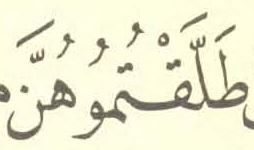 طَلَّقْتُمُوهُنَّ